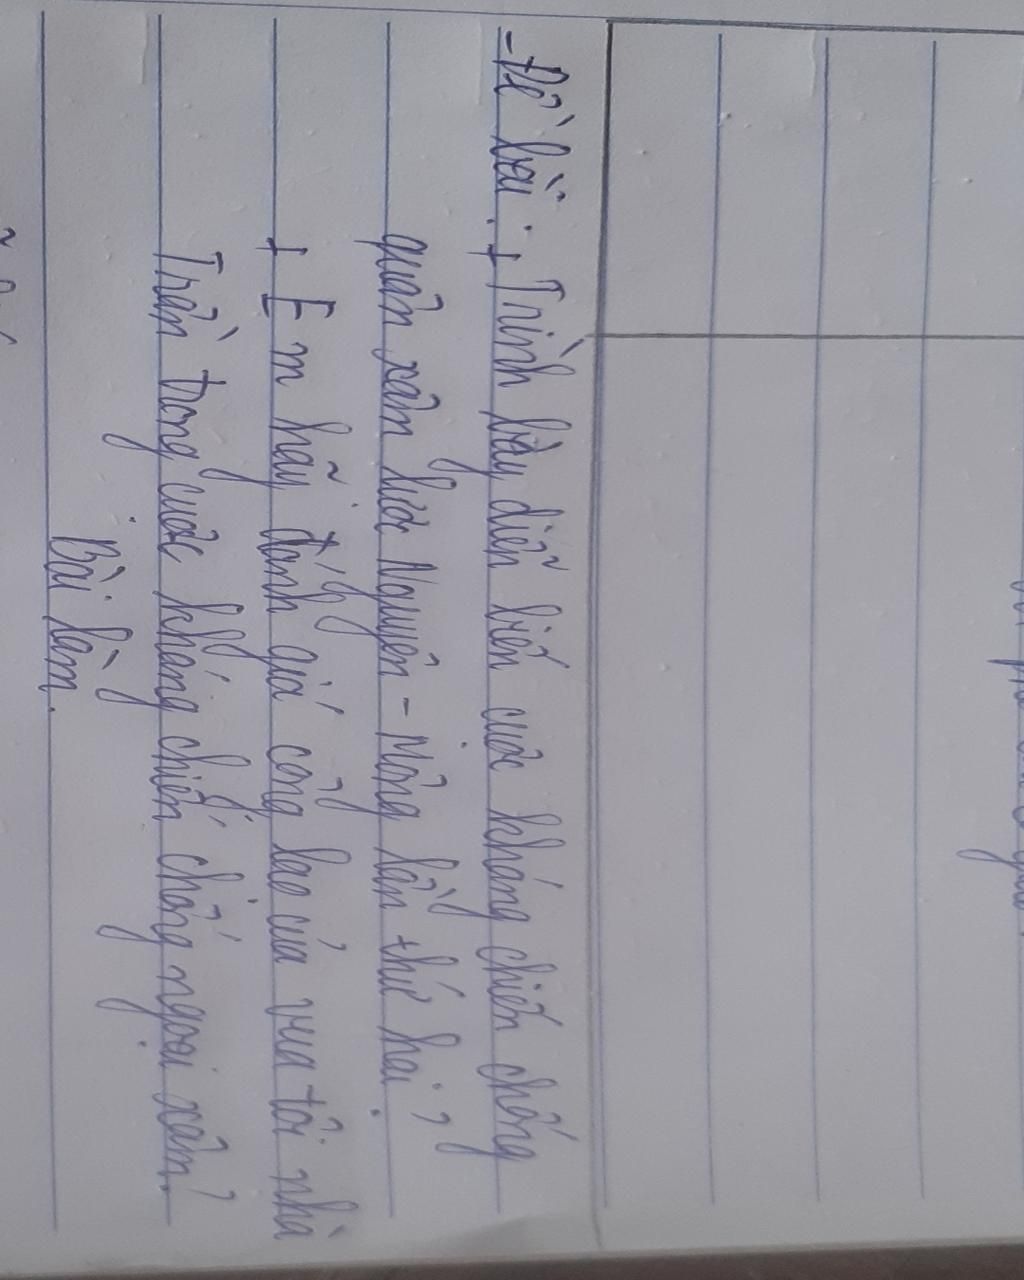 - Đề bài: + Trình bày diễn biến cuộc kháng chiến chống
quân xâm lược Nguyên - Mông lần thứ hai?
+ Em hãy đánh giá công lao của vua tôi nhà
Trần trong cuộc kháng chiến chống ngoại xâm?
Bài làm.